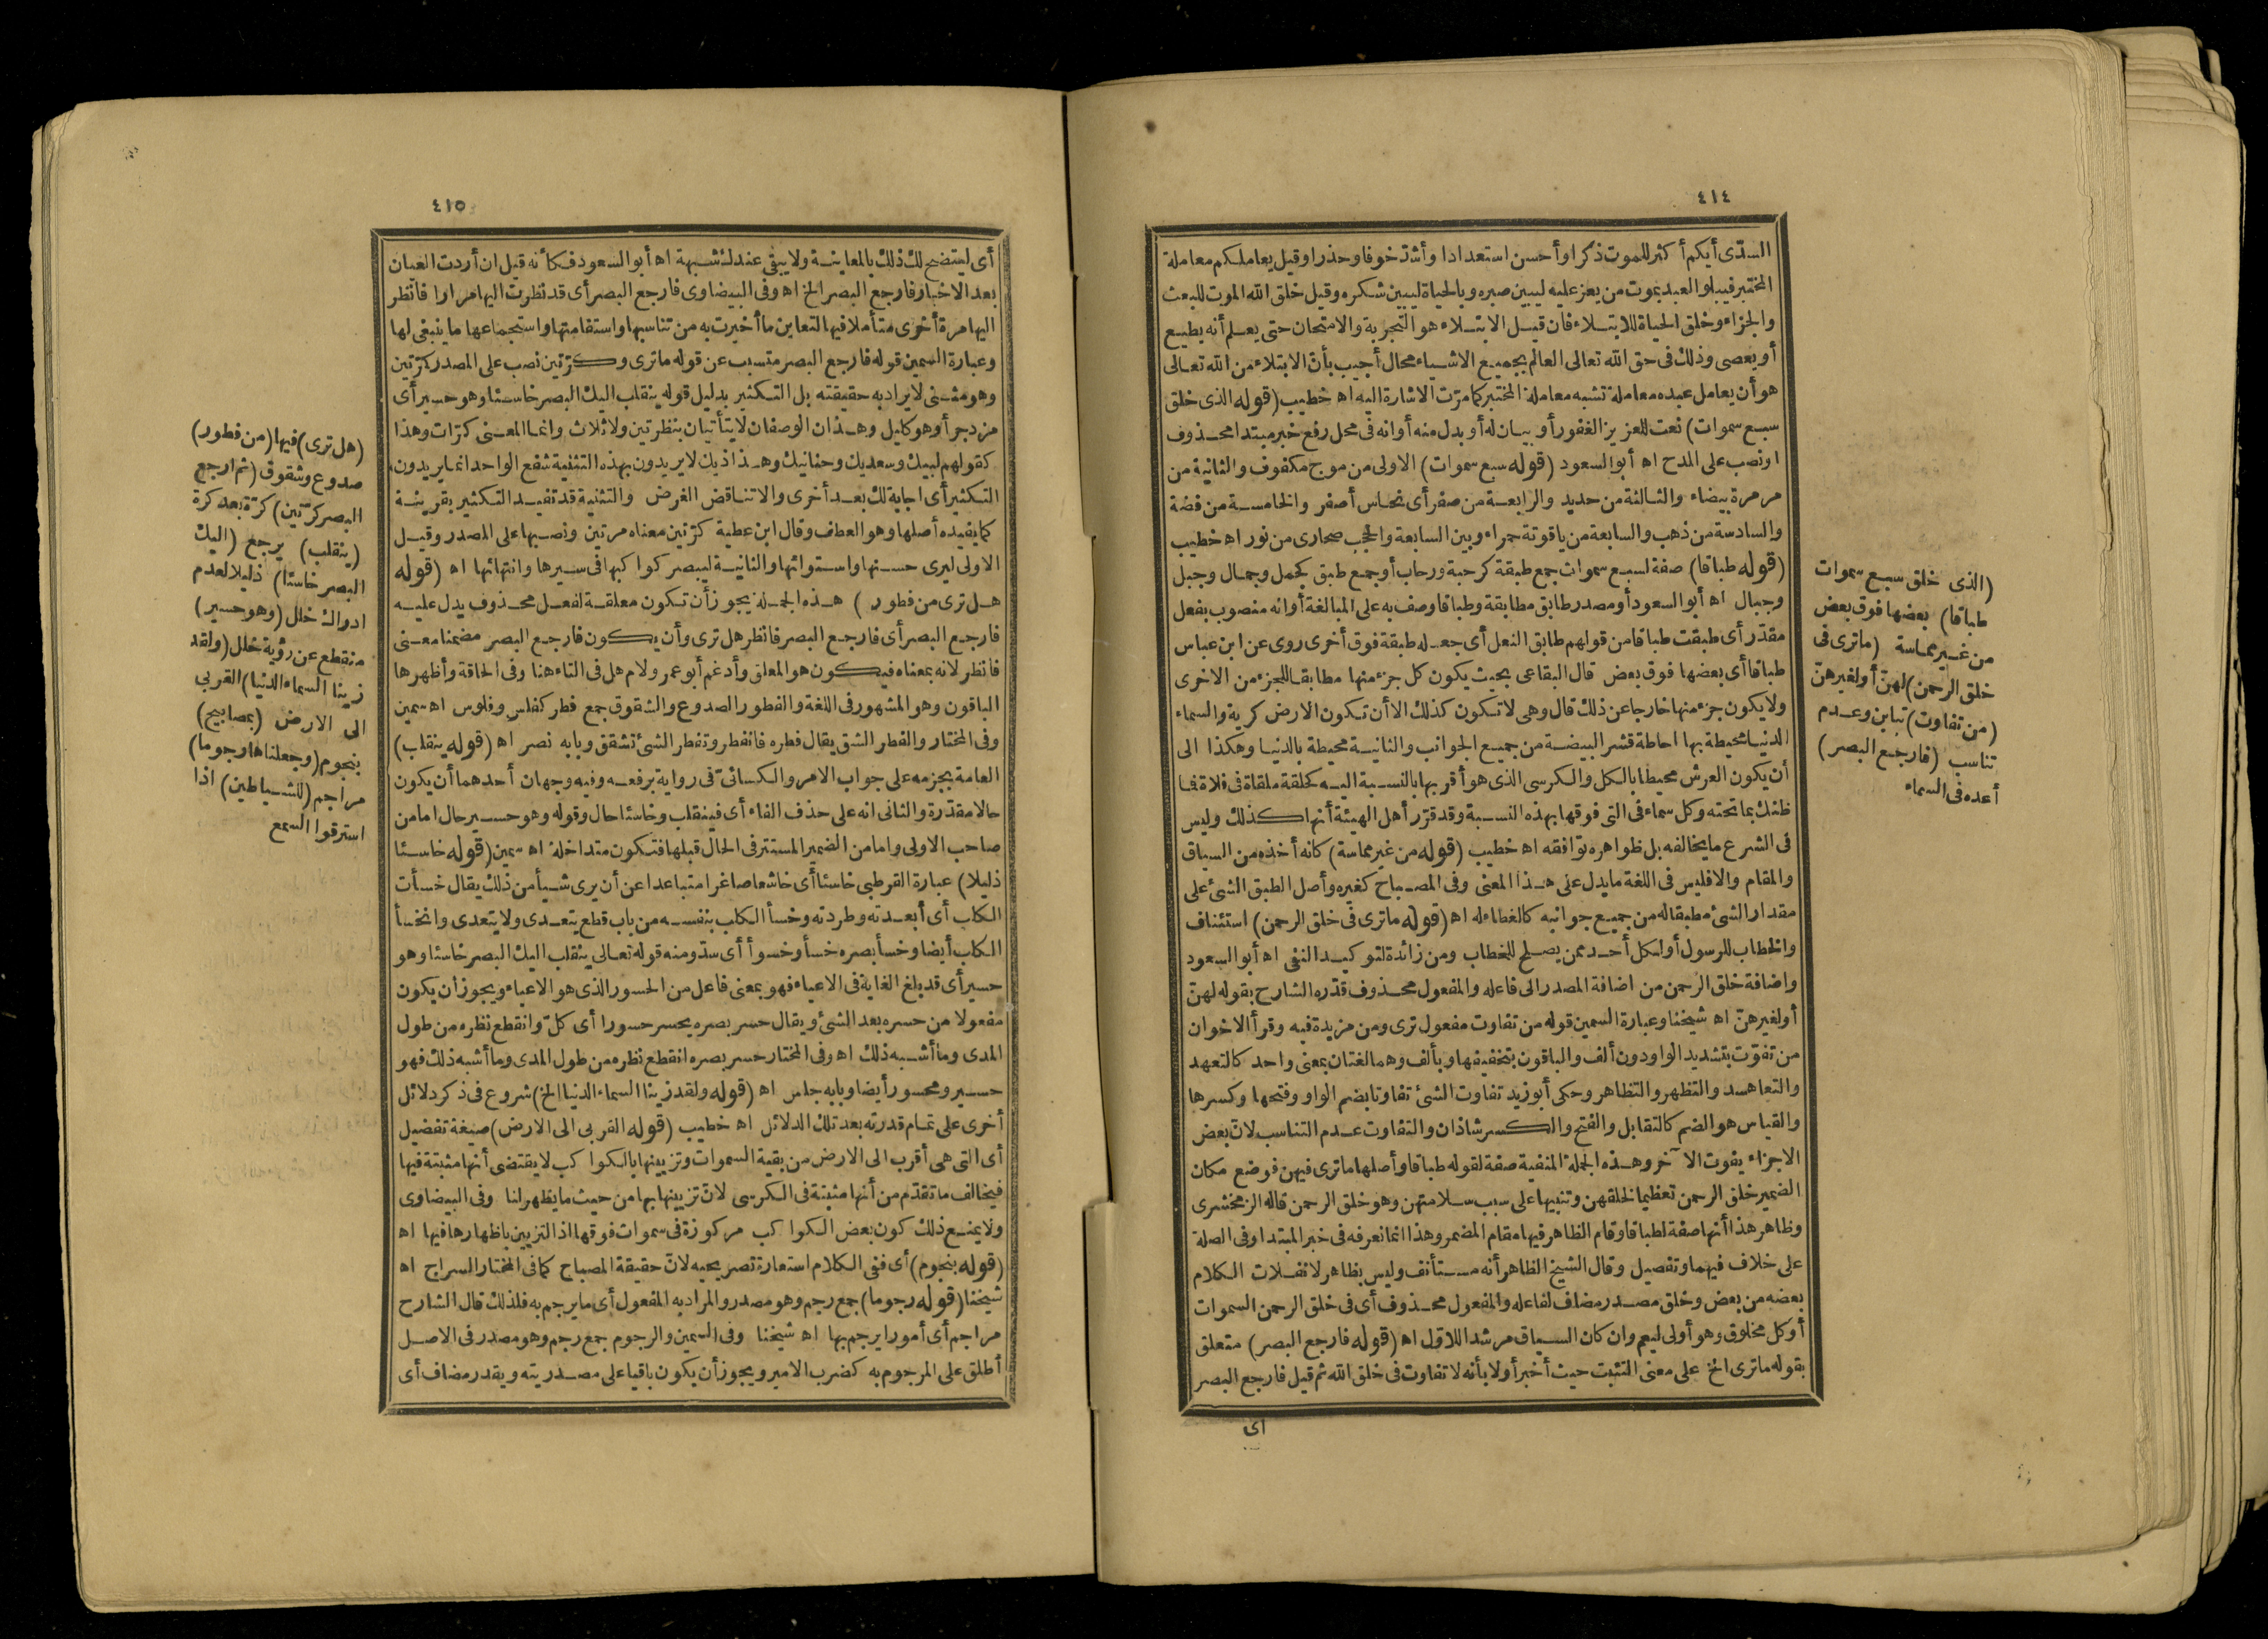 ٤١٤
السدّى أيكم أكثر للموت ذكرا وأحسن استعدادا وأشدّ خوفا وحذرا وقيل يعاملكم معاملة
المختبر فيبلو العبد بموت من يعز عليه ليبين صبره وبالحياة ليبين شكره وقيل خلق الله الموت للبعث
والجزاء وخلق الحياة للابتلاء فان قيل الابتلاء هو التجربة والامتحان حتى يعلم أنه يطيع
أو يعصى وذلك فى حق الله تعالى العالم بجميع الاشياء محال أجيب بأن الابتلاء من الله تعالى
هو أن يعامل عبده معاملة تشبه معاملة المختبر كما مرّت الاشارة اليه اه خطيب (قوله الذى خلق
سبع سموات) نعت للعزيز الغفور أو بيان له أو بدل منه أو انه فى محل رفع خبر مبتدا محذوف
او نصب على المدح اه أبو السعود (قوله سبع سموات) الاولى من موج مكفوف والثانية من
مرمرة بيضاء والثالثة من حديد والرابعة من صفر أى نحاس أصفر والخامسة من فضة
والسادسة من ذهب والسابعة من ياقوتة حمراء وبين السابعة والحجب صحارى من نور اه خطيب
(قوله طباقا) صفة لسبع سموات جمع طبقة كرحبة ورحاب أو جمع طبق كجمل وجمال وجبل
وجبال اه أبو السعود أو مصدر طابق مطابقة وطباقا وصف به على المبالغة أو انه منصوب بفعل
مقدّر أى طبقت طباقا من قولهم طابق النعل أى جعله طبقة فوق أخرى روى عن ابن عباس
طباقا أى بعضها فوق بعض قال البقاعى بحيث يكون كل جزء منها مطابقا للجزء من الاخرى
ولا يكون جزء منها خارجا عن ذلك قال وهى لا تكون كذلك الا أن تكون الارض كرية والسماء
الدنيا محيطة بها احاطة قشر البيضة من جميع الجوانب والثانية محيطة بالدنيا وهكذا الى
أن يكون العرش محيطا بالكل والكرسى الذى هو أقربها بالنسبة اليه كحلقة ملقاة فى فلاة فما
ظنك بما تحته وكل سماء فى التى فوقها بهذه النسبة وقد قرّر أهل الهيئة أنها كذلك وليس
فى الشرع ما يخالفه بل ظواهره توافقه اه خطيب (قوله من غير مماسة) كانه أخذه من السياق
والمقام والا فليس فى اللغة ما يدل على هذا المعنى وفى المصباح كغيره وأصل الطبق الشئ على
مقدار الشئ مطبقا له من جميع جوانبه كالغطاء له اه (قوله ما ترى فى خلق الرحمن) استئناف
والخطاب للرسول أو لكل أحد ممن يصلح للخطاب ومن زائدة لتوكيد النفى اه أبو السعود
واضافة خلق الرحمن من اضافة المصدر الى فاعله والمفعول محذوف قدّره الشارح بقوله لهنّ
أو لغيرهنّ اه شيخنا وعبارة السمين قوله من تفاوت مفعول ترى ومن مزيدة فيه وقرأ الاخوان
من تفوّت بتشديد الواو دون ألف والباقون بتخفيفها وبألف وهما لغتان بمعنى واحد كالتعهد
والتعاهد والتظهر والتظاهر وحكى أبو زيد تفاوت الشئ تفاوتا بضم الواو وفتحها وكسرها
والقياس هو الضم كالتقابل والفتح والكسر شاذان والتفاوت عدم التناسب لانّ بعض
الاجزاء يفوت الآخر وهذه الجملة المنفية صفة لقوله طباقا وأصلها ما ترى فيهن فوضع مكان
الضمير خلق الرحمن تعظيما لخلقهن وتنبيها على سبب سلامتهن وهو خلق الرحمن قاله الزمخشرى
وظاهر هذا أنها صفة لطباقا وقام الظاهر فيها مقام المضمر وهذا انما نعرفه فى خبر المبتدا وفى الصلة
على خلاف فيهما وتفصيل وقال الشيخ الظاهر أنه مستأنف وليس بظاهر لانفلات الكلام
بعضه من بعض وخلق مصدر مضاف لفاعله والمفعول محذوف أى فى خلق الرحمن السموات
أو كل مخلوق وهو أولى ليعم وان كان السياق مرشدا للاوّل اه (قوله فارجع البصر) متعلق
بقوله ما ترى الخ على معنى التثبت حيث أخبر أولا بأنه لا تفاوت فى خلق الله ثم قيل فارجع البصر
اى
(الذى خلق سبع سموات
طباقا) بعضها فوق بعض
من غير مماسة (ما ترى فى
خلق الرحمن) لهنّ أو لغيرهنّ
(من تفاوت) تباين وعدم
تناسب (فارجع البصر)
أعده فى السماء
٤١٥
أى ليتضح لك ذلك بالمعاينة ولا يبقى عندك شبهة اه أبو السعود فكأنه قيل ان أردت العيان
بعد الاخبار فارجع البصر الخ اه وفى البيضاوى فارجع البصر أى قد نظرت اليها مرارا فانظر
اليها مرة أخرى متأملا فيها لتعاين ما أخبرت به من تناسبها واستقامتها واستجماعها ما ينبغى لها
وعبارة السمين قوله فارجع البصر متسبب عن قوله ما ترى وكرّتين نصب على المصدر كمرّتين
وهو مثنى لا يراد به حقيقته بل التكثير بدليل قوله ينقلب اليك البصر خاسئا وهو حسير أى
مزدجرا وهو كليل وهذان الوصفان لا يتأتيان بنظرتين ولا ثلاث وانما المعنى كرّات وهذا
كقولهم لبيك وسعديك وحنانيك وهذاذيك لا يريدون بهذه التثنية شفع الواحد انما يريدون
التكثير أى اجابة لك بعد أخرى والا تناقض الغرض والتثنية قد تفيد التكثير بقرينة
كما يفيده أصلها وهو العطف وقال ابن عطية كرّتين معناه مرتين ونصبها على المصدر وقيل
الاولى ليرى حسنها واستوائها والثانية ليبصر كواكبها فى سيرها وانتهائها اه (قوله
هل ترى من فطور) هذه الجملة يجوز أن تكون معلقة لفعل محذوف يدل عليه
فارجع البصر أى فارجع البصر فانظر هل ترى وأن يكون فارجع البصر مضمنا معنى
فانظر لانه بمعناه فيكون هو المعلق وأدغم أبو عمرو لام هل فى التاء هنا وفى الحاقة وأظهرها
الباقون وهو المشهور فى اللغة والفطور الصدوع والشقوق جمع فطر كفلس وفلوس اه سمين
وفى المختار والفطر الشق يقال فطره فانفطر وتفطر الشئ تشقق وبابه نصر اه (قوله ينقلب)
العامة بجزمه على جواب الامر والكسائىّ فى رواية برفعه وفيه وجهان أحدهما أن يكون
حالا مقدّرة والثانى انه على حذف الفاء أى فينقلب وخاسئا حال وقوله وهو حسير حال اما من
صاحب الاولى واما من الضمير المستتر فى الحال قبلها فتكون متداخلة اه سمين (قوله خاسئا
ذليلا) عبارة القرطبى خاسئا أى خاشعا صاغرا متباعدا عن أن يرى شيأ من ذلك يقال خسأت
الكلب أى أبعدته وطردته وخسأ الكلب بنفسه من باب قطع يتعدى ولا يتعدى وانخسأ
الكلب أيضا وخسأ بصره خسأ وخسوأ أى سدّ ومنه قوله تعالى ينقلب اليك البصر خاسئا وهو
حسير أى قد بلغ الغاية فى الاعياء فهو بمعنى فاعل من الحسور الذى هو الاعياء ويجوز أن يكون
مفعولا من حسره بعد الشئ ويقال حسر بصره يحسر حسورا أى كلّ وانقطع نظره من طول
المدى وما أشبه ذلك اه وفى المختار حسر بصره انقطع نظره من طول المدى وما أشبه ذلك فهو
حسير ومحسور أيضا وبابه جلس اه (قوله ولقد زينا السماء الدنيا الخ) شروع فى ذكر دلائل
أخرى على تمام قدرته بعد تلك الدلائل اه خطيب (قوله القربى الى الارض) صيغة تفضيل
أى التى هى أقرب الى الارض من بقية السموات وتزيينها بالكواكب لا يقتضى أنها مثبتة فيها
فيخالف ما تقدّم من أنها مثبتة فى الكرسى لانّ تزيينها بها من حيث ما يظهر لنا وفى البيضاوى
ولا يمنع ذلك كون بعض الكواكب مركوزة فى سموات فوقها اذ التزيين باظهارها فيها اه
(قوله بنجوم) أى ففى الكلام استعارة تصريحيه لانّ حقيقة المصباح كما فى المختار السراج اه
شيخنا (قوله رجوما) جمع رجم وهو مصدر والمراد به المفعول أى ما يرجم به فلذلك قال الشارح
مراجم أى أمورا يرجم بها اه شيخنا وفى السمين والرجوم جمع رجم وهو مصدر فى الاصل
أطلق على المرجوم به كضرب الامير ويجوز أن يكون باقيا على مصدريته ويقدر مضاف أى
(هل ترى) فيها (من فطور)
صدوع وشقوق (ثم ارجع
البصر كرّتين) كرّة بعد كرة
(ينقلب) يرجع (اليك
البصر خاسئا) ذليلا لعدم
ادراك خلل (وهو حسير)
منقطع عن رؤية خلل (ولقد
زينا السماء الدنيا) القربى
الى الارض (بمصابيح)
بنجوم (وجعلناها رجوما)
مراجم (للشياطين) اذا
استرقوا السمع